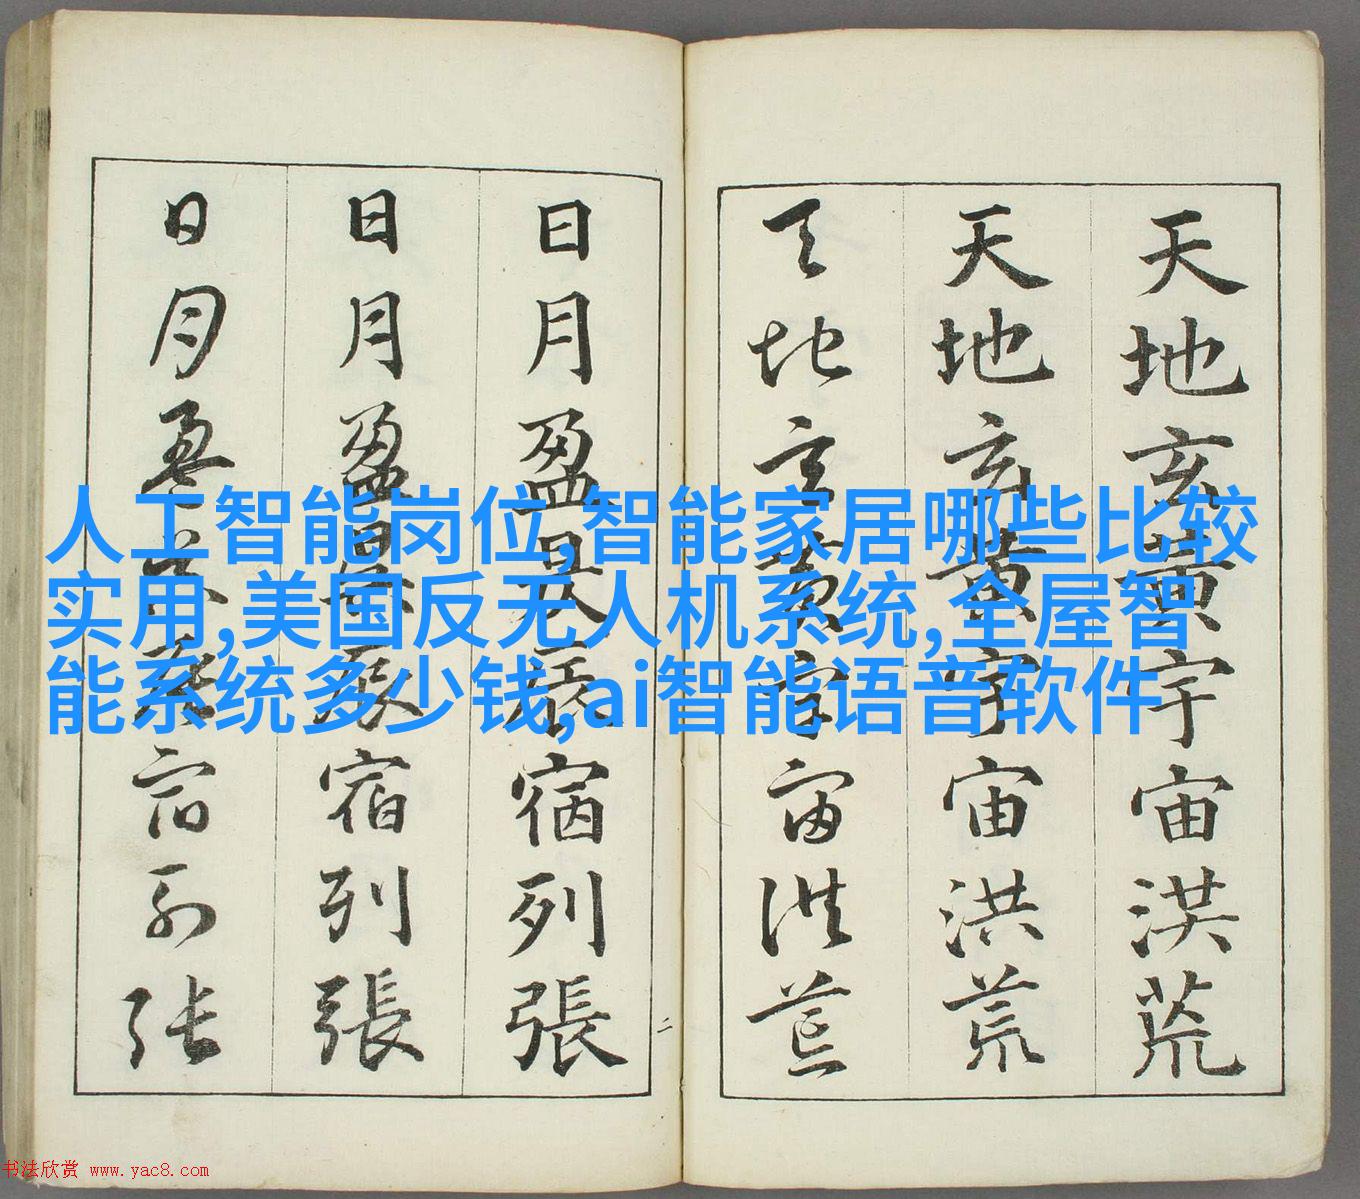 天地玄黄宇宙洪荒
天地玄黄宇宙洪荒
天地玄黄宇宙洪荒
日月盈昃辰宿列張
日月盈昃辰宿列張
日月盈昃辰宿列張
二
人工智能岗位,智能家居哪些比较
实用,美国反无人机系统,全屋智
能系统多少钱,ai智能语音软件
书法欣赏 www.yac8.com